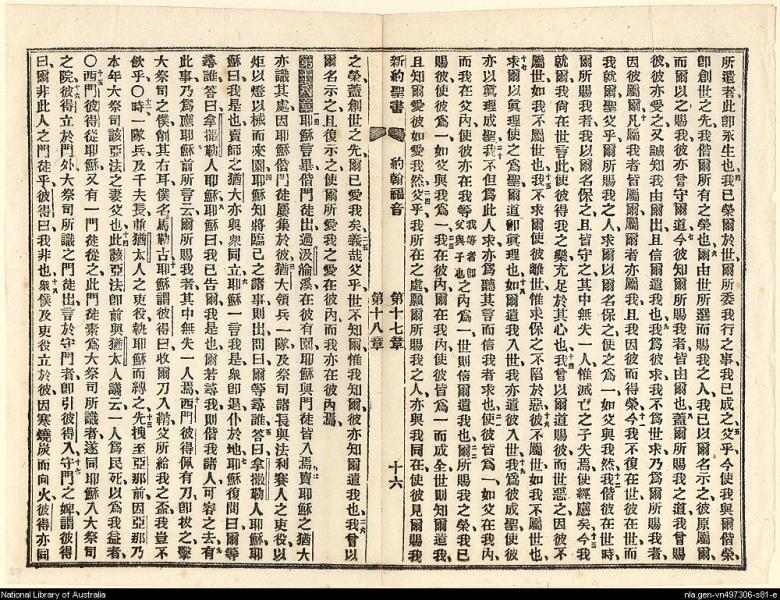 所遣者此卽永生也我已榮爾於世爾所委我行之事我已成之父乎今使我與爾偕榮
卽創世之先我偕爾所有之榮也爾由世所選而賜我之人我已以爾名示之彼原屬爾
而爾以之賜我彼亦曾守爾道今彼知爾所賜我者皆由爾也蓋爾所賜我之道我曾賜
彼彼亦受之又誠知我由爾出且信爾遣我也我爲彼求我不爲世求乃爲爾所賜我者
因彼屬爾凡屬我者皆屬爾屬爾者亦屬我且我因彼而得榮今我不復在世彼在世而
我就爾聖父乎爾所賜我之人求爾以爾名保之使之爲一如父與我然我偕彼在世時
爾所賜我者我以爾名保之且皆守之其中無失一人惟滅亡之子失焉使經應矣今我
就爾我尙在世言此使彼得我之樂充足於其心也我曾以爾道賜彼而世惡之因彼不
屬世如我不屬世也我不求爾使彼離世惟求保之不陷於惡彼不屬世如我不屬世也
求爾以眞理使之爲聖爾道卽眞理也如爾遣我入世我亦遣彼入世我爲彼成聖使彼
亦以眞理成聖我不但爲此人求亦爲聽其言而信我者求也使彼皆爲一如父在我內
而我在父內使彼亦在我等我等者卽父與子也之內爲一世則信爾遣我也爾所賜我之榮我已
賜彼使彼爲一如父與我爲一我在彼內爾在我內使彼皆爲一而成全世則知爾遣我
且知爾愛彼如愛我然父乎我所在之處願爾所賜我之人亦與我同在使彼見爾賜我
新約聖書 約翰福音 第十七章 十六
第十八章
之榮蓋創世之先爾已愛我矣義哉父乎世不知爾惟我知爾彼亦知爾遣我也我曾以
爾名示之且復示之使爾所愛我之愛在彼內而我亦在彼內焉
第十八章耶穌言畢偕門徒出過汲淪溪在彼有園耶穌與門徒皆入焉賣耶穌之猶大
亦識其處因耶穌偕門徒屢集於彼猶大領兵一隊及祭司諸長與法利賽人之吏役以
炬以燈以械而來園耶穌知將臨己之諸事則出問曰爾等尋誰答曰拿撒勒人耶穌耶
穌曰我是也賣師之猶大亦與衆同立耶穌一言我是衆卽退仆於地耶穌復問曰爾等
尋誰答曰拿撒勒人耶穌耶穌曰我已告爾我是也爾若尋我則偕我諸人可容之去有
此事乃爲應耶穌前所言云爾所賜我者其中無失一人焉西門彼得佩有刀卽拔之擊
大祭司之僕創其右耳僕名馬勒古耶穌謂彼得曰收爾刀入鞘父所給我之盃我豈不
飮乎〇時一隊兵及千夫長並猶太人之吏役執耶穌而縛之先拽至亞那前因亞那乃
本年大祭司該亞法之妻父也此該亞法卽前與猶太人議云一人爲民死以爲我益者
〇西門彼得從耶穌又有一門徒從之此門徒素爲大祭司所識者遂同耶穌入大祭司
之院彼得立於門外大祭司所識之門徒出言於守門者卽引彼得入守門之婢謂彼得
曰爾非此人之門徒乎彼得曰我非也衆僕及吏役立於彼因寒燒炭而向火彼得亦同
National Library of Australia
nla.gen-vn497306-s81-e